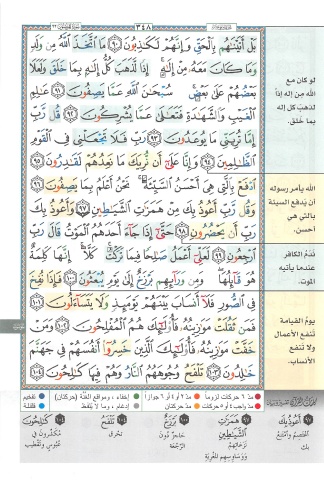 ٣٤٨
بَلْ أَتَيْنَٰهُم بِٱلْحَقِّ وَإِنَّهُمْ لَكَٰذِبُونَ ٩٠ مَا ٱتَّخَذَ ٱللَّهُ مِن وَلَدٍ
وَمَا كَانَ مَعَهُۥ مِنْ إِلَٰهٍ إِذًا لَّذَهَبَ كُلُّ إِلَٰهٍۭ بِمَا خَلَقَ وَلَعَلَا
بَعْضُهُمْ عَلَىٰ بَعْضٍ سُبْحَٰنَ ٱللَّهِ عَمَّا يَصِفُونَ ٩١ عَٰلِمِ
ٱلْغَيْبِ وَٱلشَّهَٰدَةِ فَتَعَٰلَىٰ عَمَّا يُشْرِكُونَ ٩٢ قُل رَّبِّ
إِمَّا تُرِيَنِّي مَا يُوعَدُونَ ٩٣ رَبِّ فَلَا تَجْعَلْنِي فِي ٱلْقَوْمِ
ٱلظَّٰلِمِينَ ٩٤ وَإِنَّا عَلَىٰٓ أَن نُّرِيَكَ مَا نَعِدُهُمْ لَقَٰدِرُونَ ٩٥
ٱدْفَعْ بِٱلَّتِي هِيَ أَحْسَنُ ٱلسَّيِّئَةَ نَحْنُ أَعْلَمُ بِمَا يَصِفُونَ ٩٦
وَقُل رَّبِّ أَعُوذُ بِكَ مِنْ هَمَزَٰتِ ٱلشَّيَٰطِينِ ٩٧ وَأَعُوذُ بِكَ
رَبِّ أَن يَحْضُرُونِ ٩٨ حَتَّىٰٓ إِذَا جَآءَ أَحَدَهُمُ ٱلْمَوْتُ قَالَ رَبِّ
ٱرْجِعُونِ ٩٩ لَعَلِّيٓ أَعْمَلُ صَٰلِحًا فِيمَا تَرَكْتُ كَلَّآ إِنَّهَا كَلِمَةٌ
هُوَ قَآئِلُهَا وَمِن وَرَآئِهِم بَرْزَخٌ إِلَىٰ يَوْمِ يُبْعَثُونَ ١٠٠ فَإِذَا نُفِخَ
فِي ٱلصُّورِ فَلَآ أَنسَابَ بَيْنَهُمْ يَوْمَئِذٍ وَلَا يَتَسَآءَلُونَ ١٠١
فَمَن ثَقُلَتْ مَوَٰزِينُهُۥ فَأُو۟لَٰٓئِكَ هُمُ ٱلْمُفْلِحُونَ ١٠٢ وَمَنْ
خَفَّتْ مَوَٰزِينُهُۥ فَأُو۟لَٰٓئِكَ ٱلَّذِينَ خَسِرُوٓا۟ أَنفُسَهُمْ فِي جَهَنَّمَ
خَٰلِدُونَ ١٠٣ تَلْفَحُ وُجُوهَهُمُ ٱلنَّارُ وَهُمْ فِيهَا كَٰلِحُونَ ١٠٤
لو كان مع
الله مِن إله إذاً
لذهب كل إله
بما خلق.
الله يأمر رسوله
أن يدفع السيئة
بالتي هي
أحسن.
ندم الكافر
عندما يأتيه
الموت.
يوم القيامة
تنفع الأعمال
ولا تنفع
الأنساب.
مد ٦ حركات لزوماً مد ٢ أو ٤ أو ٦ جوازاً إخفاء، ومواقع الغنة (حركتان) تفخيم
مد واجب ٤ أو ٥ حركات مد حركتان إدغام، وما لا يلفظ قلقلة
أَعُوذُ بِكَ
أعتصم وأمتنع
بك
هَمَزَاتِ
الشَّيَاطِينِ
نزغاتهم
ووساوسهم المغرية
بَرْزَخٌ
حاجز دون
الرجعة
تَلْفَحُ
تحرق
كَالِحُونَ
مكشرون في
عبوس وتقطيب